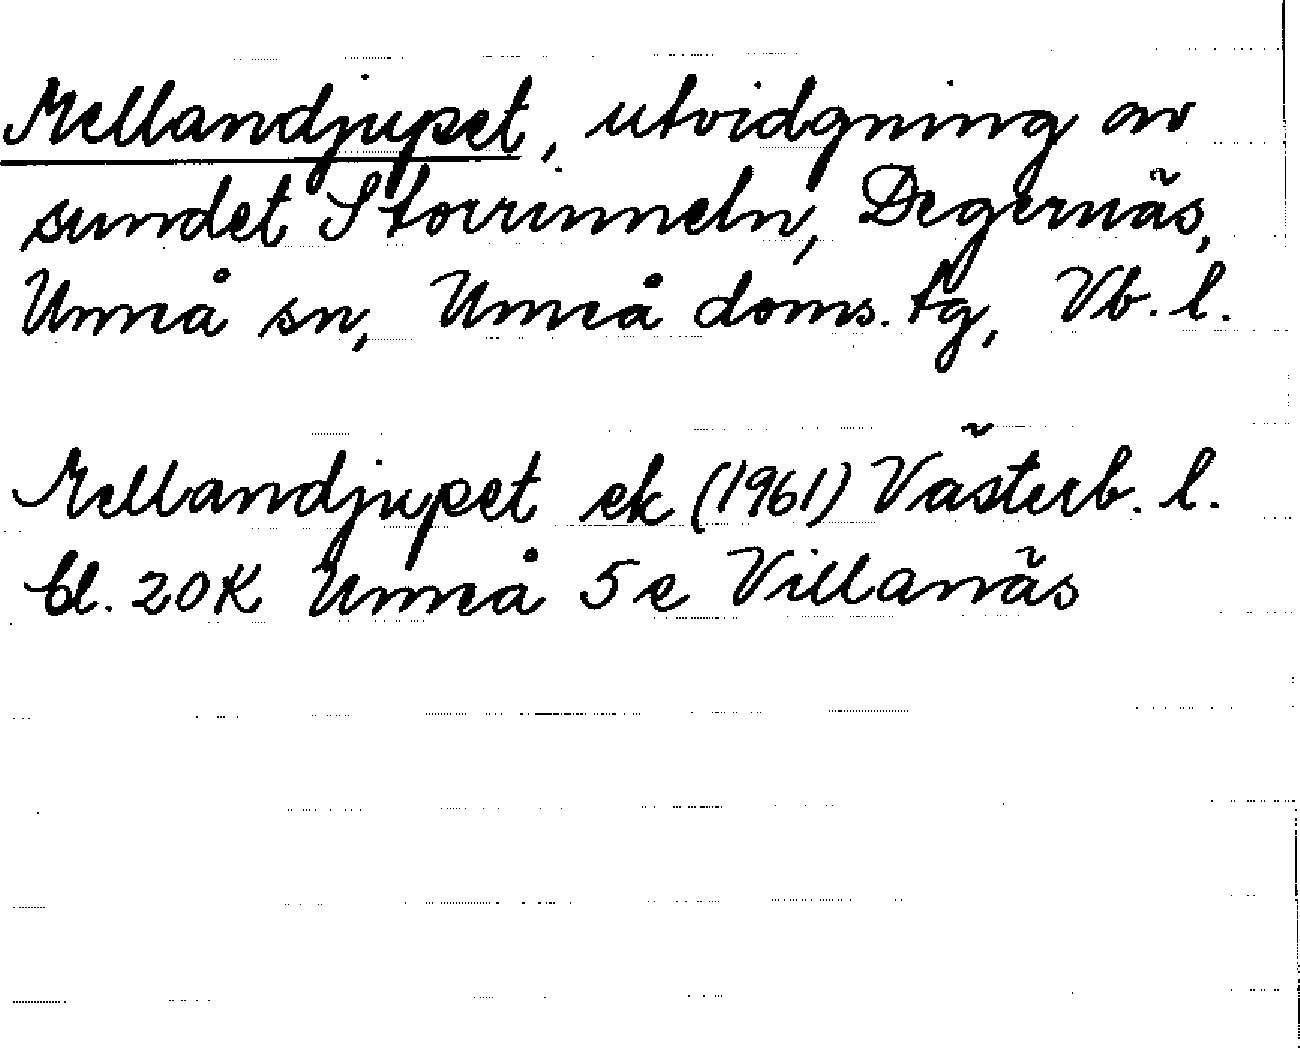 Mellandjupet, utvidgning av
sundet Storrinneln, Degernäs,
Umeå sn, Umeå doms. tg, Vb. l.
Mellandjupet ek (1961) Västerb. l.
bl. 20K Umeå 5e Villanäs